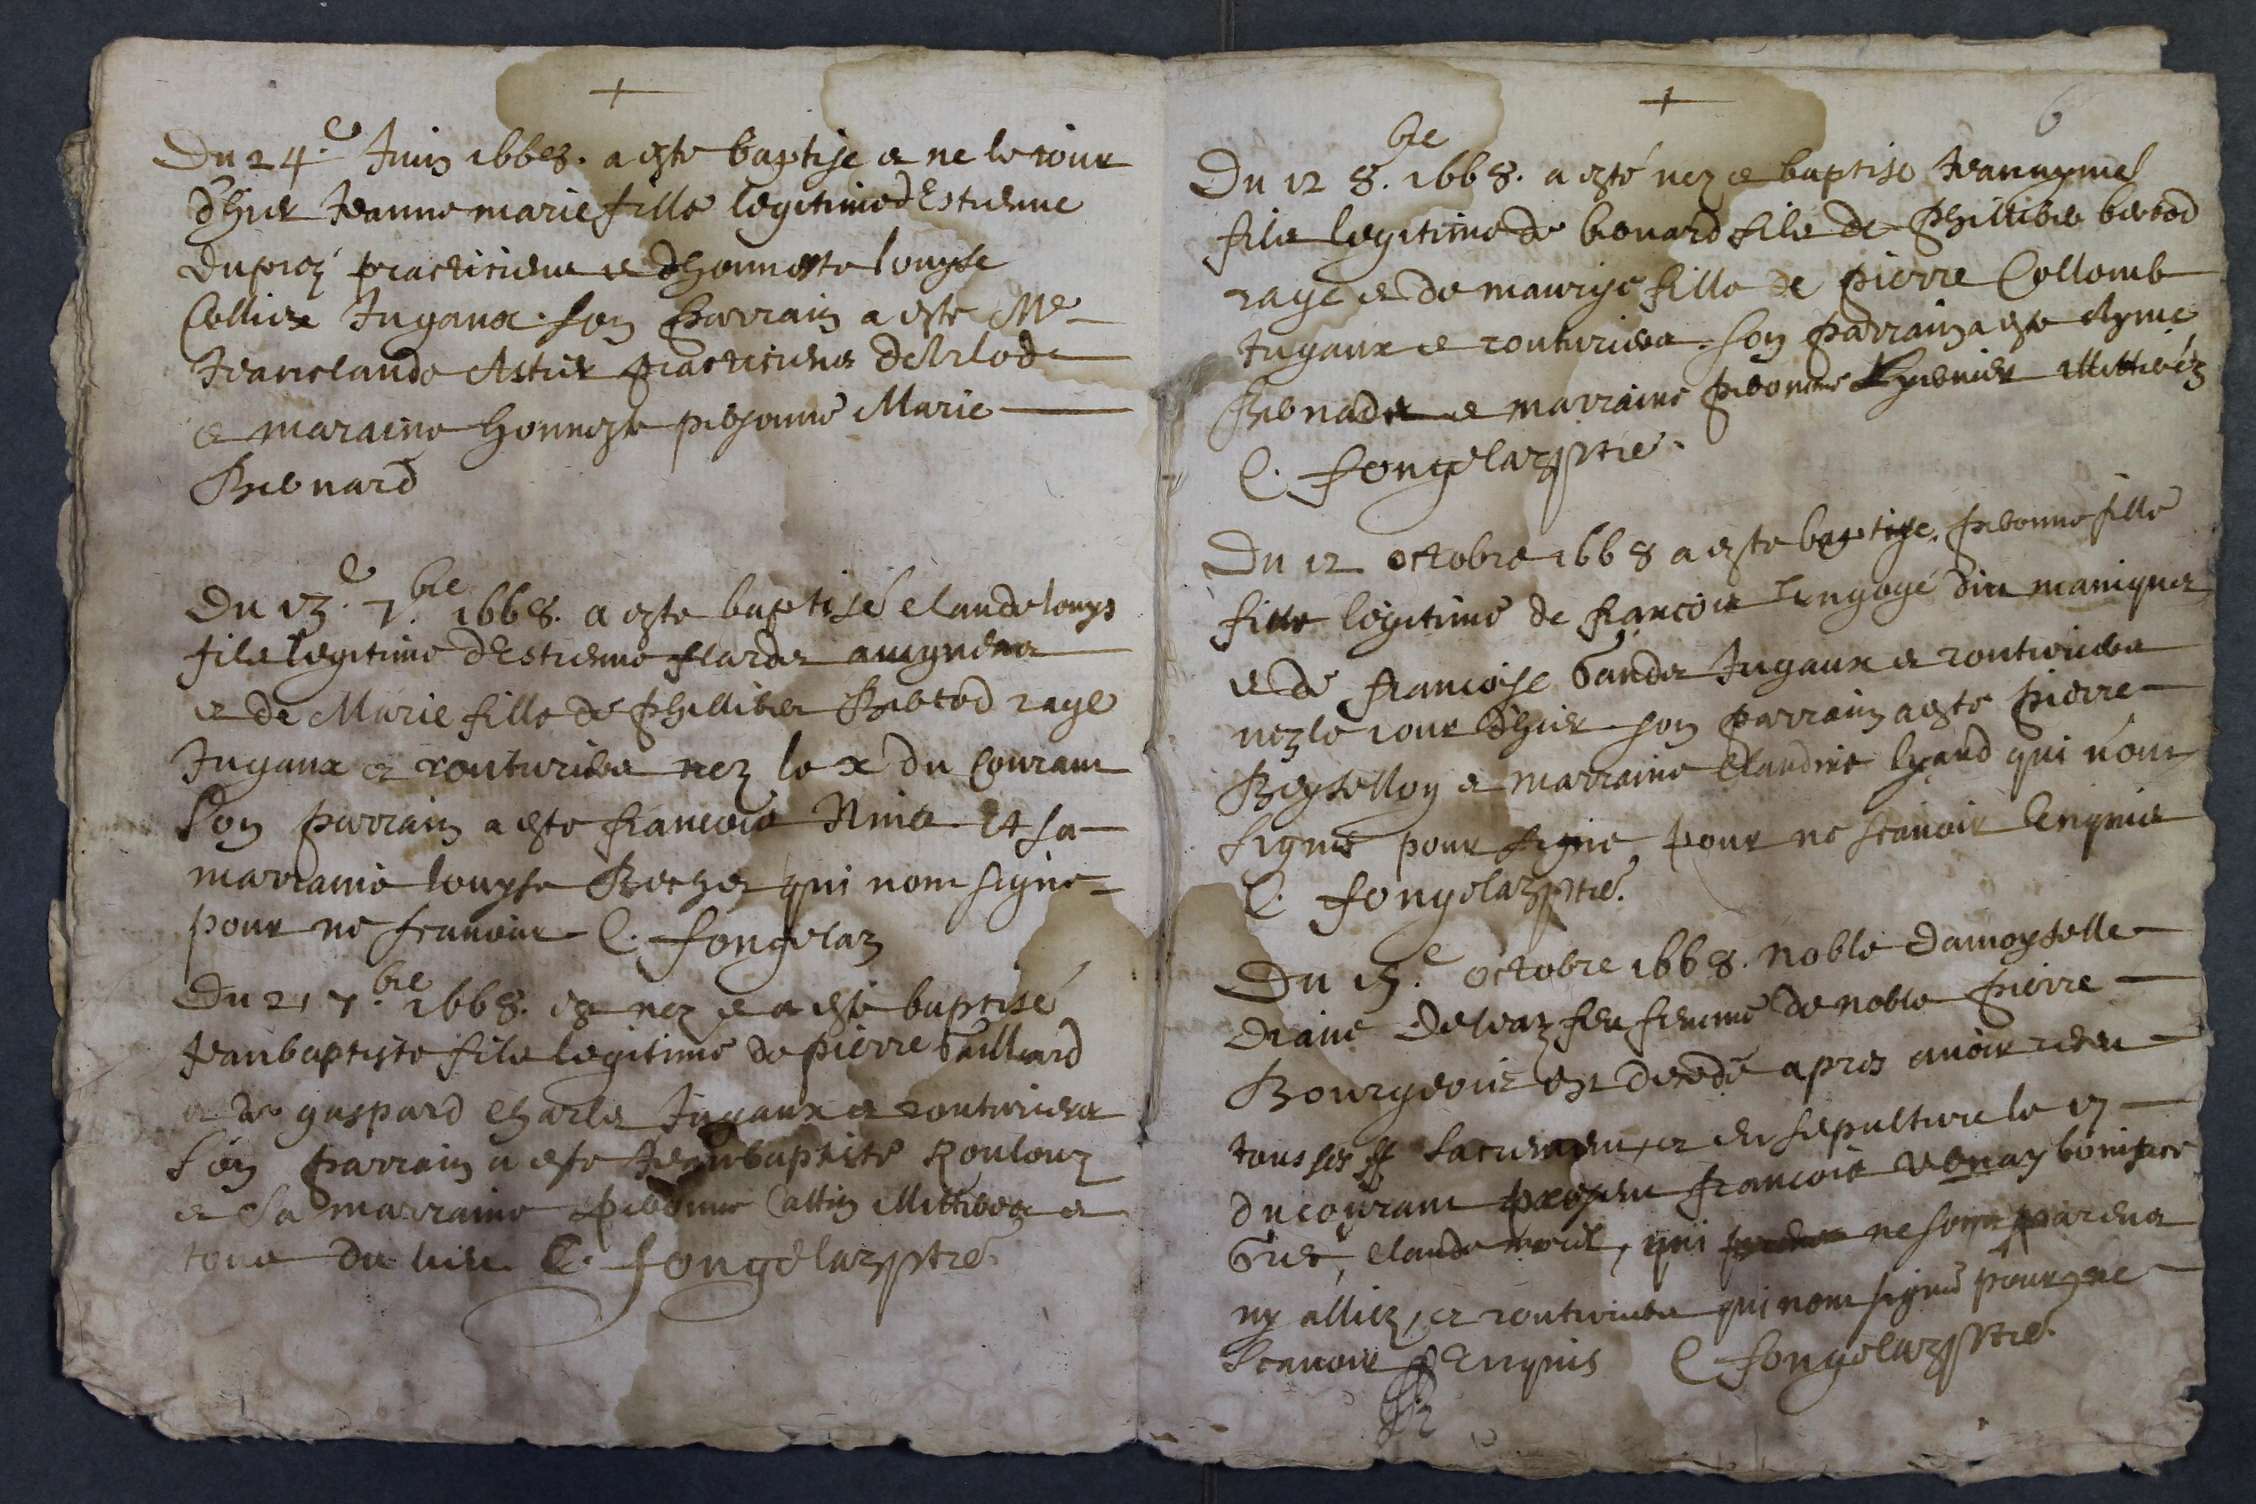 +
Du 24.e Juin 1668. a este baptise et ne le iour
d'hier Jeanne marie fille legitime d'Estienne
Duprez practicien et d'honneste louyse
Collier Jugaux. son parrain a este Me
Jeanclaude Astier practicien d'Arlod
et maraine honneste personne Marie
Bernard
Du 13.e 7.bre 1668. a este baptisé claudelouys
fils legitime d'Estienne
et de Marie fille de Phillibert Bertod rage
Jugaux et routuriers nez le x du Courant
Son parrain a este francois Et sa
marraine louyse qui nont signe
pour ne scauoir C. fongelaz
Du 21 7.bre 1668. est nez et a esté baptisé
Jeanbaptiste fils legitime de pierre Gailliard
et de gaspard Charles Jugaux et routuriers
son parrain a este Jeanbaptiste
et sa marraine pernonne
tous du lieu C. fongelaz pstre
+
6
Du 12 8.bre 1668. a esté nez et baptise
fils legitime de bernard fils de Phillibert bertod
rage et de mauryse fille de pierre Collomb
Jugaux et routuriers. son parrain a este Ayme
Bernadet et marraine pernonne
C. fongelaz pstre.
Du 12 octobre 1668 a este baptise. pernonne fille
fille legitime de francois dit
et de francoise Jugaux et routuriers
nez le iour d'hier son parrain a este pierre
et marraine Claudine qui n'ont
signe pour signe pour ne scauoir Enquis
C. fongelaz pstre.
Du 15.e octobre 1668. Noble Damoyselle
Diane feu femme de noble pierre
Bourgeois est decedé apres auoir receu
tous ses sacremens, et en sepulture le 17
du courant present francois boniface
claude , qui ne sont parens
ny alliez, et routuriers qui nont signé pour ne
scauoir Enquis C fongelaz pstre.